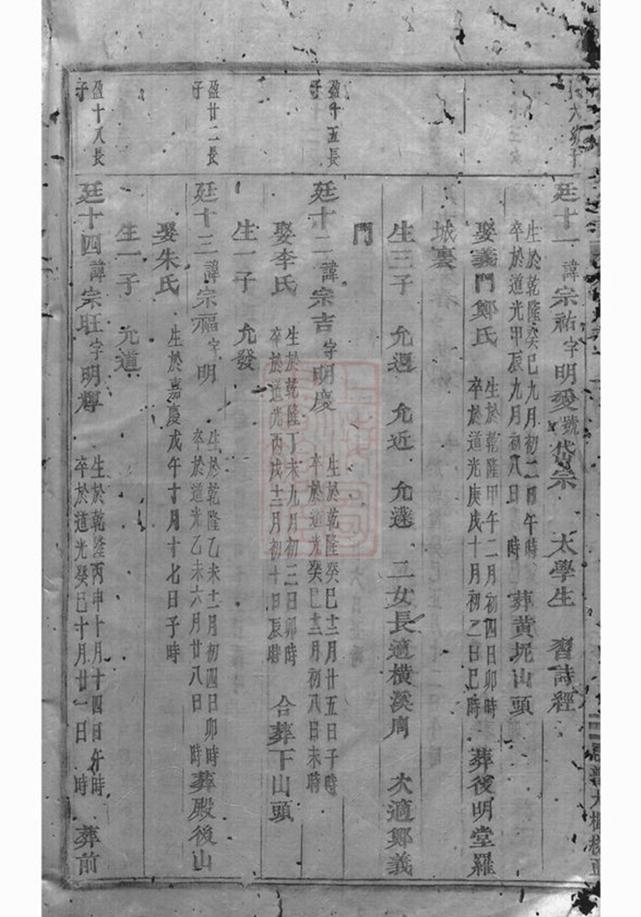 廷十一諱宗祐字明愛號代宗 太學生 習詩經
生於乾隆癸巳九月初二日午時
卒於道光甲辰九月初八日 時
葬黄坭山頭
娶義門鄭氏
生於乾隆甲午二月初四日卯時
卒於道光庚戌十月初二日巳時
葬後明堂羅
城裏
生三子 允選 允近 允達 二女長適橫溪周 次適鄭義
門
盈十五長
子
廷十二諱宗吉字明慶
生於乾隆癸巳十二月廿五日子時
卒於道光癸巳十二月初八日未時
娶李氏
生於乾隆丁未九月初二日卯時
卒於道光丙戌十二月初十日辰時
合葬下山頭
生一子 允發
盈廿二長
子
廷十三諱宗福字明
生於乾隆乙未十二月初四日卯時
卒於道光乙未六月廿八日 時
葬殿後山
娶朱氏
生於嘉慶戊午十月十七日子時
生一子 允道
盈十八長
子
廷十四諱宗旺字明輝
生於乾隆丙申十月十四日午時
卒於道光癸巳十月廿一日 時
葬前